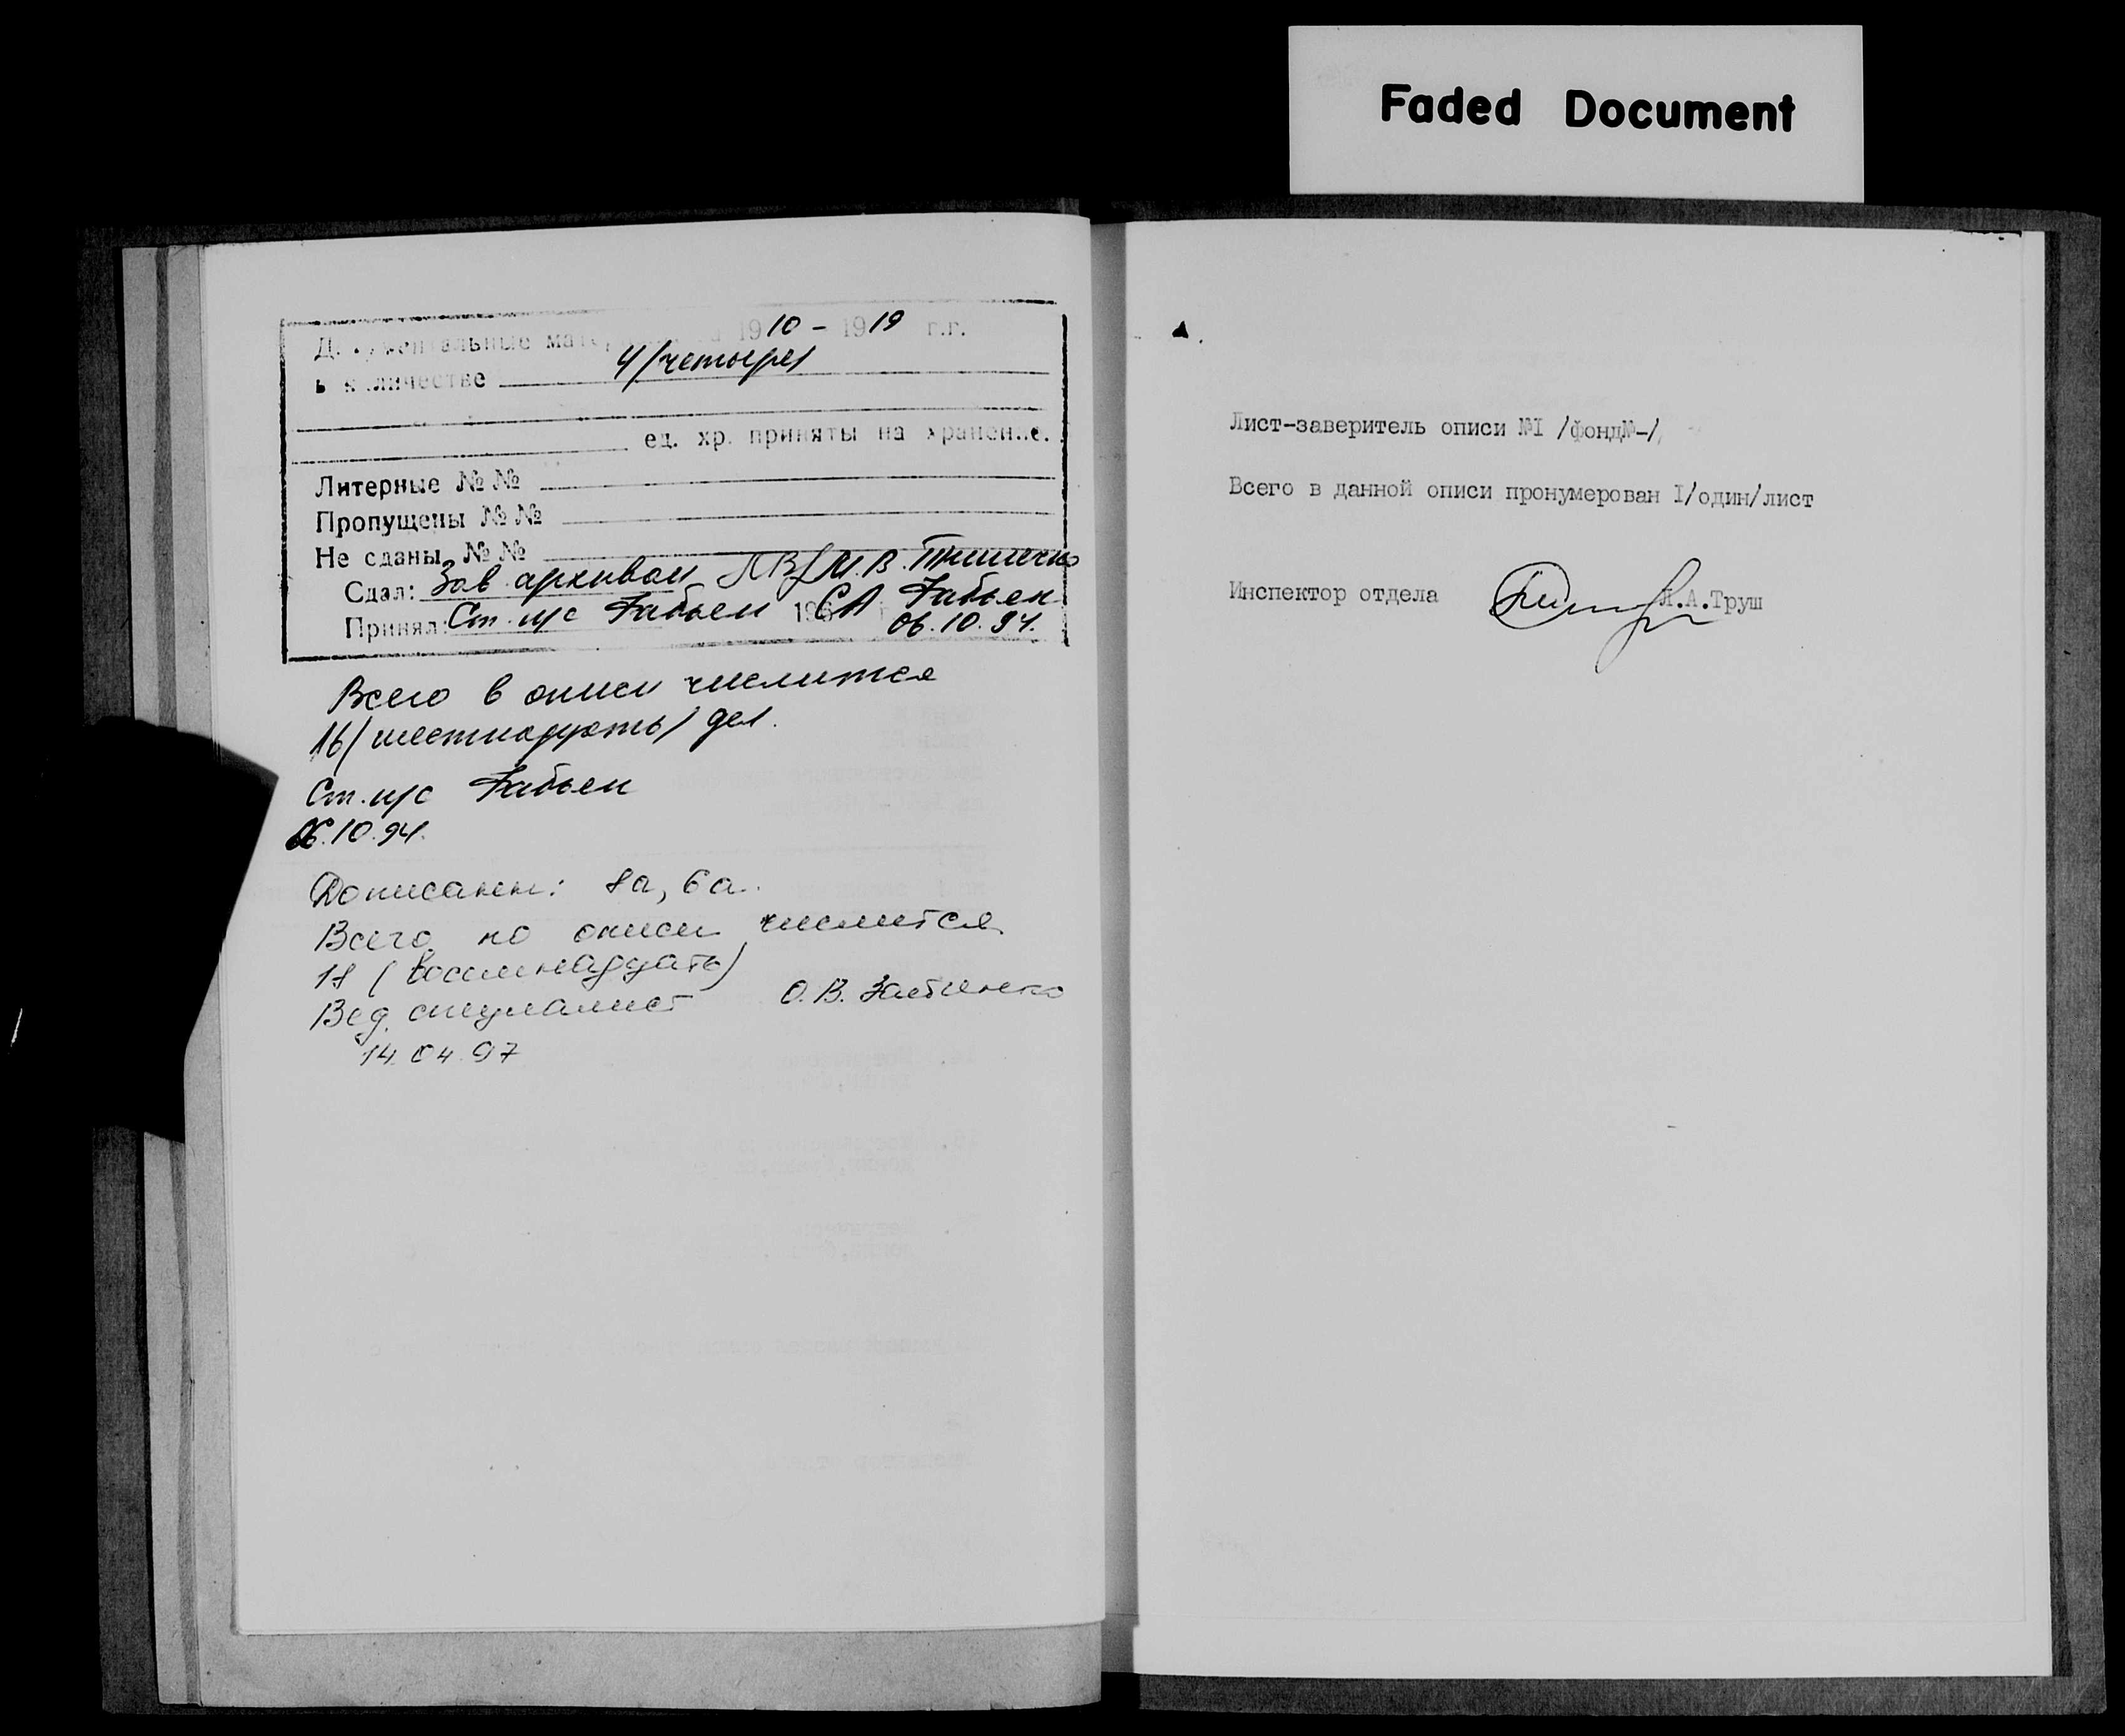 Faded Document
Документальные материалы за 1910 - 1919 г.г.
в количестве 4/четыре/
ед. хр. приняты на хранение.
Литерные №№
Пропущены №№
Не сданы №№
Сдал: Зав. архивом М.В.
Принял: Ст. н/с 196 СА
06.10.94.
Всего в описи числится
16/шестнадцать/ дел.
Ст. н/с
06.10.94.
Дописаны: 8а, 6а.
Всего по описи числится
18 (восемнадцать)
Вед. специалист О.В.
14.04.97
Лист-заверитель описи №I /фонд№-/,
Всего в данной описи пронумерован I/один/лист
Инспектор отдела Л.А.Труш